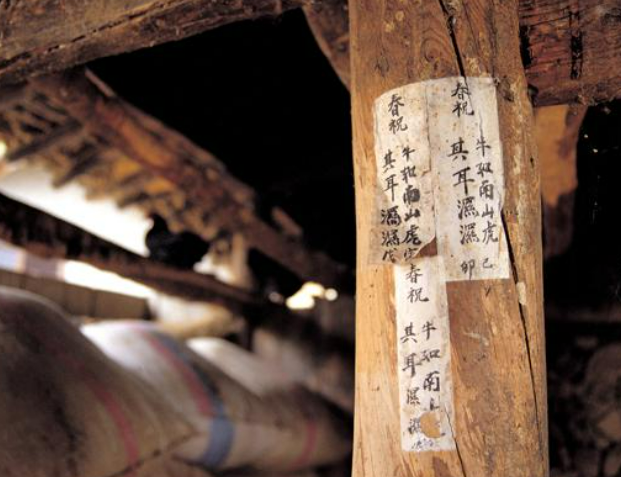 春祝
牛如南山虎 己
其耳濕濕 卯
春祝
牛如南山虎
其耳濕濕 戊
春祝
牛如南山
其耳濕濕